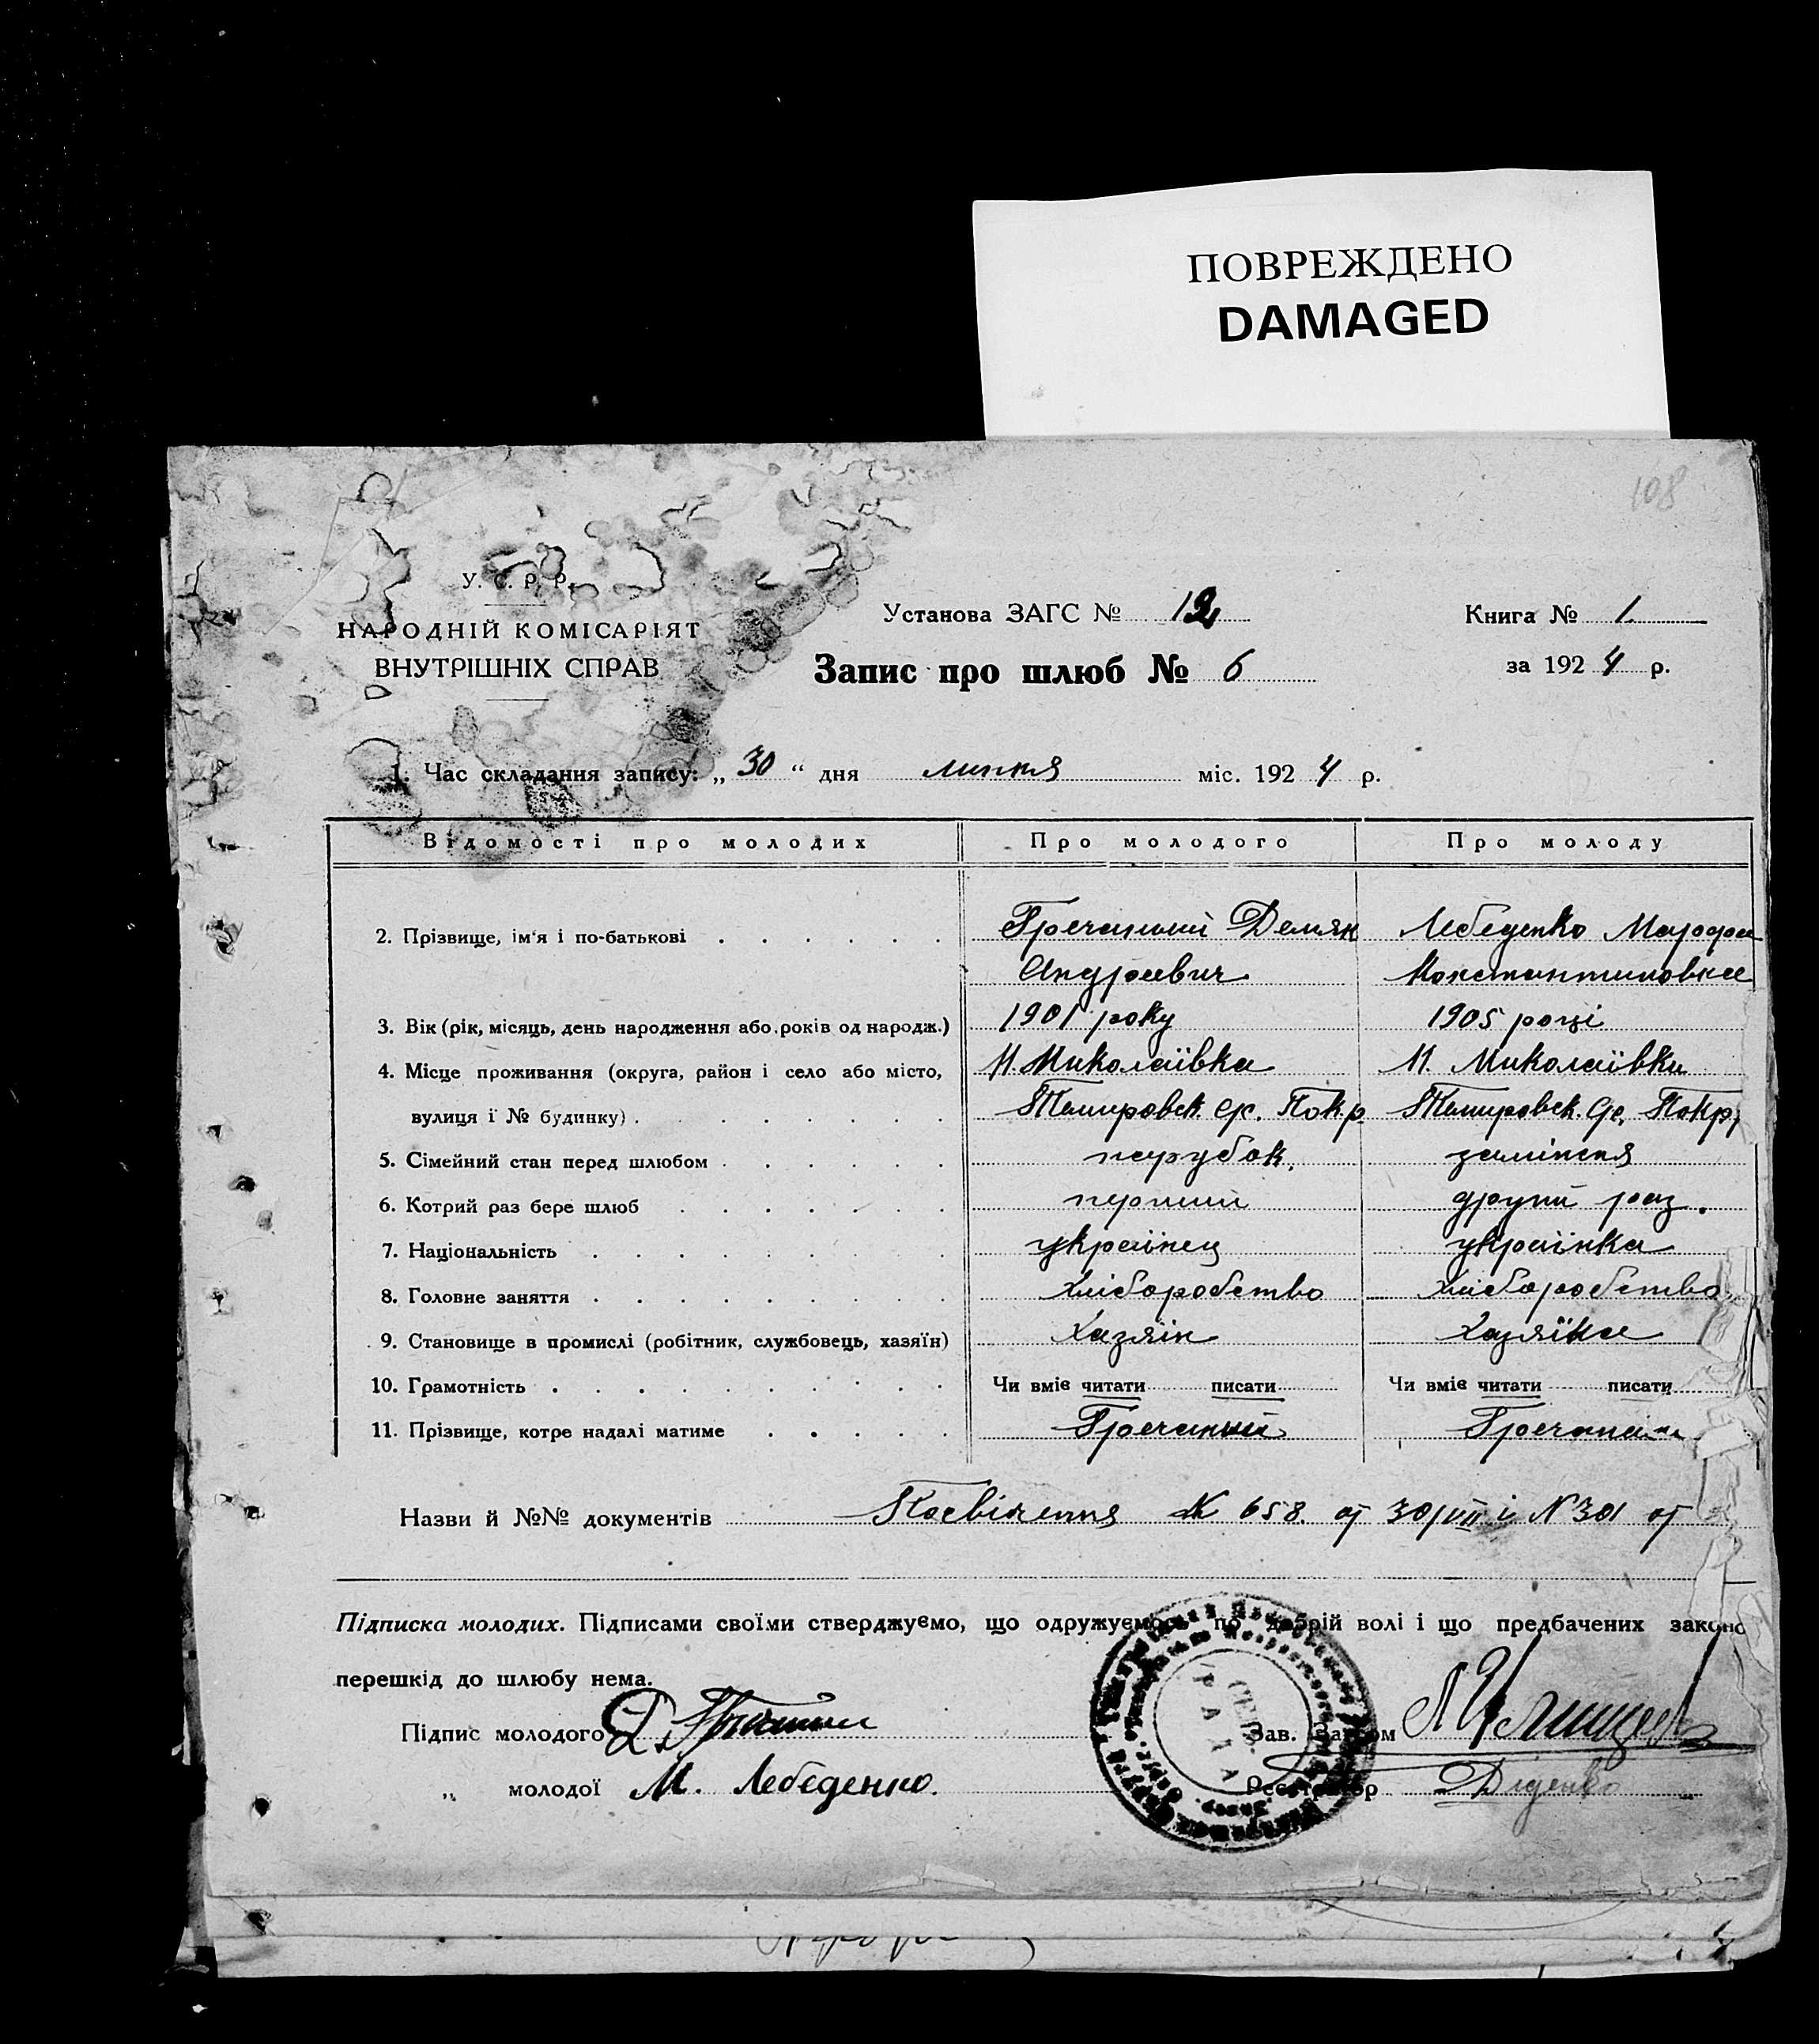 ПОВРЕЖДЕНО
DAMAGED
108
У. С. Р. Р.
НАРОДНІЙ КОМІСАРІЯТ
ВНУТРІШНІХ СПРАВ
Установа ЗАГС № 12
Книга № 1.
Запис про шлюб № 6
за 1924 р.
1. Час складання запису: „30“ дня липня міс. 1924 р.
Відомості про молодих Про молодого Про молоду
2. Прізвище, ім'я і по-батькові Гречаный Демян Лебеденко Марфа
Андреевич Константиновна
3. Вік (рік, місяць, день народження або років од народж.) 1901 року 1905 році
4. Місце проживання (округа, район і село або місто, Н. Миколаївка Н. Миколаївка
вулиця і № будинку) Покр. Покр.
5. Сімейний стан перед шлюбом парубок. заміжня
6. Котрий раз бере шлюб перший другий раз.
7. Національність українец українка
8. Головне заняття хліборобство хліборобство
9. Становище в промислі (робітник, службовець, хазяїн) хазяїн хазяїка
10. Грамотність Чи вміє читати писати Чи вміє читати писати
11. Прізвище, котре надалі матиме Гречаный Гречаная
Назви й №№ документів Посвічення № 658. от 30/VII і № 301 от
Підписка молодих. Підписами своїми стверджуємо, що одружуємось по добрій волі і що предбачених законо
перешкід до шлюбу нема.
Підпис молодого Д. Зав. Загсом
„ молодої М. Лебеденко. Реєстратор Діденко